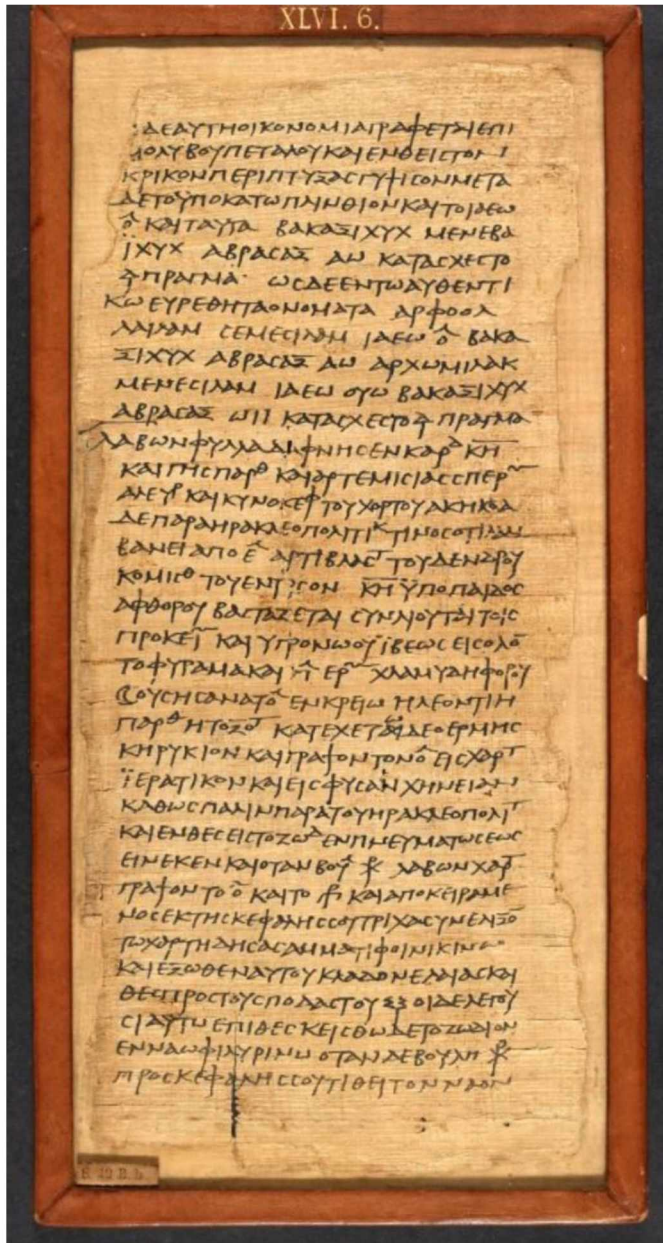 XLVI. 6.
ΔΕΑΥΤΗΟΙΚΟΝΟΜΙΑΓΡΑΦΕΤΑΙΕΠΙ
ΜΟΛΥΒΟΥΠΕΤΑΛΟΥΚΑΙΕΝΘΕΙCΤΟΝ
ΚΡΙΚΟΝΠΕΡΙΠΤΥΞΑCΓΥΨΙCΟΝΜΕΤΑ
ΔΕΤΟΫΠΟΚΑΤΩΠΛΙΝΘΙΟΝΚΑΙΤΟΙΑΕΩ
Ο ΚΑΙΤΑΥΤΑ ΒΑΚΑΞΙΧΥΧ ΜΕΝΕΒΑ
ΪΧΥΧ ΑΒΡΑCΑΞ ΑΩ ΚΑΤΑCΧΕCΤΟ
ΠΡΑΓΜΑ· ΩCΔΕΕΝΤΩΑΥΘΕΝΤΙ
ΚΩΕΥΡΕΘΗΤΑΟΝΟΜΑΤΑ ΑΡΦΟΟΛ
ΛΑΙΛΑΜ CΕΜΕCΙΛΑΜ ΙΑΕΩ Ο ΒΑΚΑ
ΞΙΧΥΧ ΑΒΡΑCΑΞ ΑΩ ΑΡΧΩΜΙΛΑΚ
ΜΕΝΕCΙΛΑΜ ΙΑΕΩ ΟΥΩ ΒΑΚΑΞΙΧΥΧ
ΑΒΡΑCΑΞ ΩΙΙ ΚΑΤΑCΧΕCΤΟ ΠΡΑΓΜΑ
ΛΑΒΩΝΦΥΛΛΑΔΑΦΝΗCΕΝΚΑΡΔ ΚΗ
ΚΑΙΓΗCΠΑΡΘ ΚΑΙΑΡΤΕΜΙCΙΑCCΠΕΡΜ
ΑΛΕΥΡ ΚΑΙΚΥΝΟΚΕΦ ΤΟΥΧΟΡΤΟΥΑΚΗΚΟΑ
ΔΕΠΑΡΑΗΡΑΚΛΕΟΠΟΛΙΤΙΚ ΤΙΝΟCΟΤΙΛΑΜ
ΒΑΝΕΙΑΠΟΕΛ ΑΡΤΙΒΛΑCΤ ΤΟΥΔΕΝΔΡΟΥ
ΚΟΜΙCΘ ΤΟΥΕΝΤ CΟΝ ΚΗ ΫΠΟΠΑΙΔΟC
ΑΦΘΟΡΟΥ ΒΑCΤΑΖΕΤΑΙ CΥΝΛΙΟΥΤΑΙΤΟΙC
ΠΡΟΚΕΙ ΚΑΙΥΓΡΟΝΩΟΥ ΪΒΕΩC ΕΙCΟΛΟ
ΤΟΦΥΡΑΜΑΚΑΙ ΕΡΜ ΧΛΑΜΥΔΗΦΟΡΟΥ
ΟΥCΗCΑΝΑΤΟ ΕΝΚΡΕΙΩ ΗΛΕΟΝΤΙΗ
ΠΑΡΘ ΗΤΟΞΟ ΚΑΤΕΧΕΤΩΔΕΟΕΡΜΗC
ΚΗΡΥΚΙΟΝ ΚΑΙΓΡΑΨΟΝΤΟΝΟ ΕΙCΧΑΡΤ
ΪΕΡΑΤΙΚΟΝΚΑΙΕΙCΦΥCΑΝ ΧΗΝΕΙΑΝ
ΚΑΘΩCΠΑΛΙΝΠΑΡΑΤΟΥΗΡΑΚΛΕΟΠΟΛΙΤ
ΚΑΙΕΝΘΕCΕΙCΤΟΖΩΔ ΕΝΠΝΕΥΜΑΤΩCΕΩC
ΕΙΝΕΚΕΝ ΚΑΙΟΤΑΝΒΟΥΛ ΛΑΒΩΝΧΑΡΤ
ΓΡΑΨΟΝΤΟΟ ΚΑΙΤΟ ΚΑΙΑΠΟΚΕΙΡΑΜΕ
ΝΟCΕΚΤΗCΚΕΦΑΛΗCCΟΥΤΡΙΧΑCΥΝΕΛΙΞΟ
ΤΩΧΑΡΤΗΔΗCΑCΑΜΜΑΤΙΦΟΙΝΙΚΙΝΩ
ΚΑΙΕΞΩΘΕΝΑΥΤΟΥΚΛΑΔΟΝΕΛΑΙΑCΚΑΙ
ΘΕCΠΡΟCΤΟΥCΠΟΔΑCΤΟΥ ΟΙΔΕΛΕΓΟΥ
CΙΑΥΤΩΕΠΙΘΕC ΚΕΙCΘΩΔΕΤΟΖΩΔΙΟΝ
ΕΝΝΑΩΦΙΛΥΡΙΝΩ ΟΤΑΝΔΕΒΟΥΛΗ
ΠΡΟCΚΕΦΑΛΗCCΟΥΤΙΘΕΙΤΟΝΝΑΟΝ